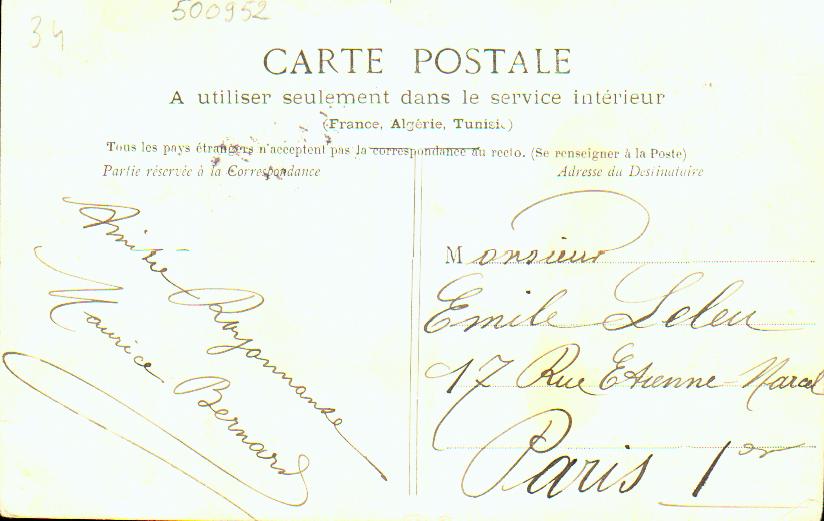 500952
34
CARTE POSTALE
A utiliser seulement dans le service intérieur
(France, Algérie, Tunisie)
Tous les pays étrangers n'acceptent pas la correspondance au recto. (Se renseigner à la Poste)
Partie réservée à la Correspondance
Adresse du Destinataire
Amitié Royonnanse
Maurice Bernard
Monsieur
Emile Leleu
17 Rue Etienne-Marcel
Paris 1er